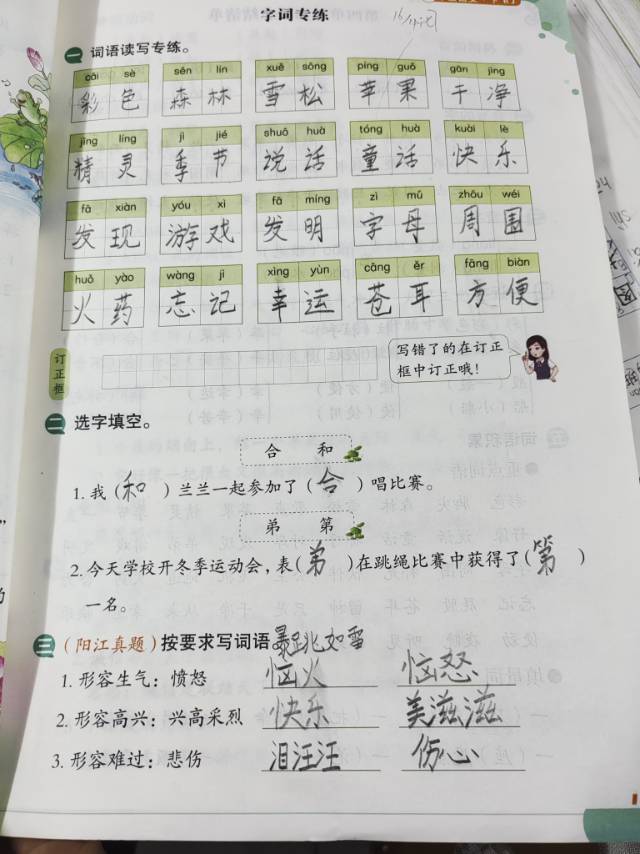 字词专练
一 词语读写专练。
cǎi sè sēn lín xuě sōng píng guǒ gān jìng
彩色 森林 雪松 苹果 干净
jīng líng jì jié shuō huà tóng huà kuài lè
精灵 季节 说话 童话 快乐
fā xiàn yóu xì fā míng zì mǔ zhōu wéi
发现 游戏 发明 字母 周围
huǒ yào wàng jì xìng yùn cāng ěr fāng biàn
火药 忘记 幸运 苍耳 方便
订正框
写错了的在订正
框中订正哦!
二 选字填空。
合 和
1. 我(和)兰兰一起参加了(合)唱比赛。
弟 第
2. 今天学校开冬季运动会,表(弟)在跳绳比赛中获得了(第)
一名。
三 (阳江真题)按要求写词语 暴跳如雷
1. 形容生气:愤怒 恼火 恼怒
2. 形容高兴:兴高采烈 快乐 美滋滋
3. 形容难过:悲伤 泪汪汪 伤心